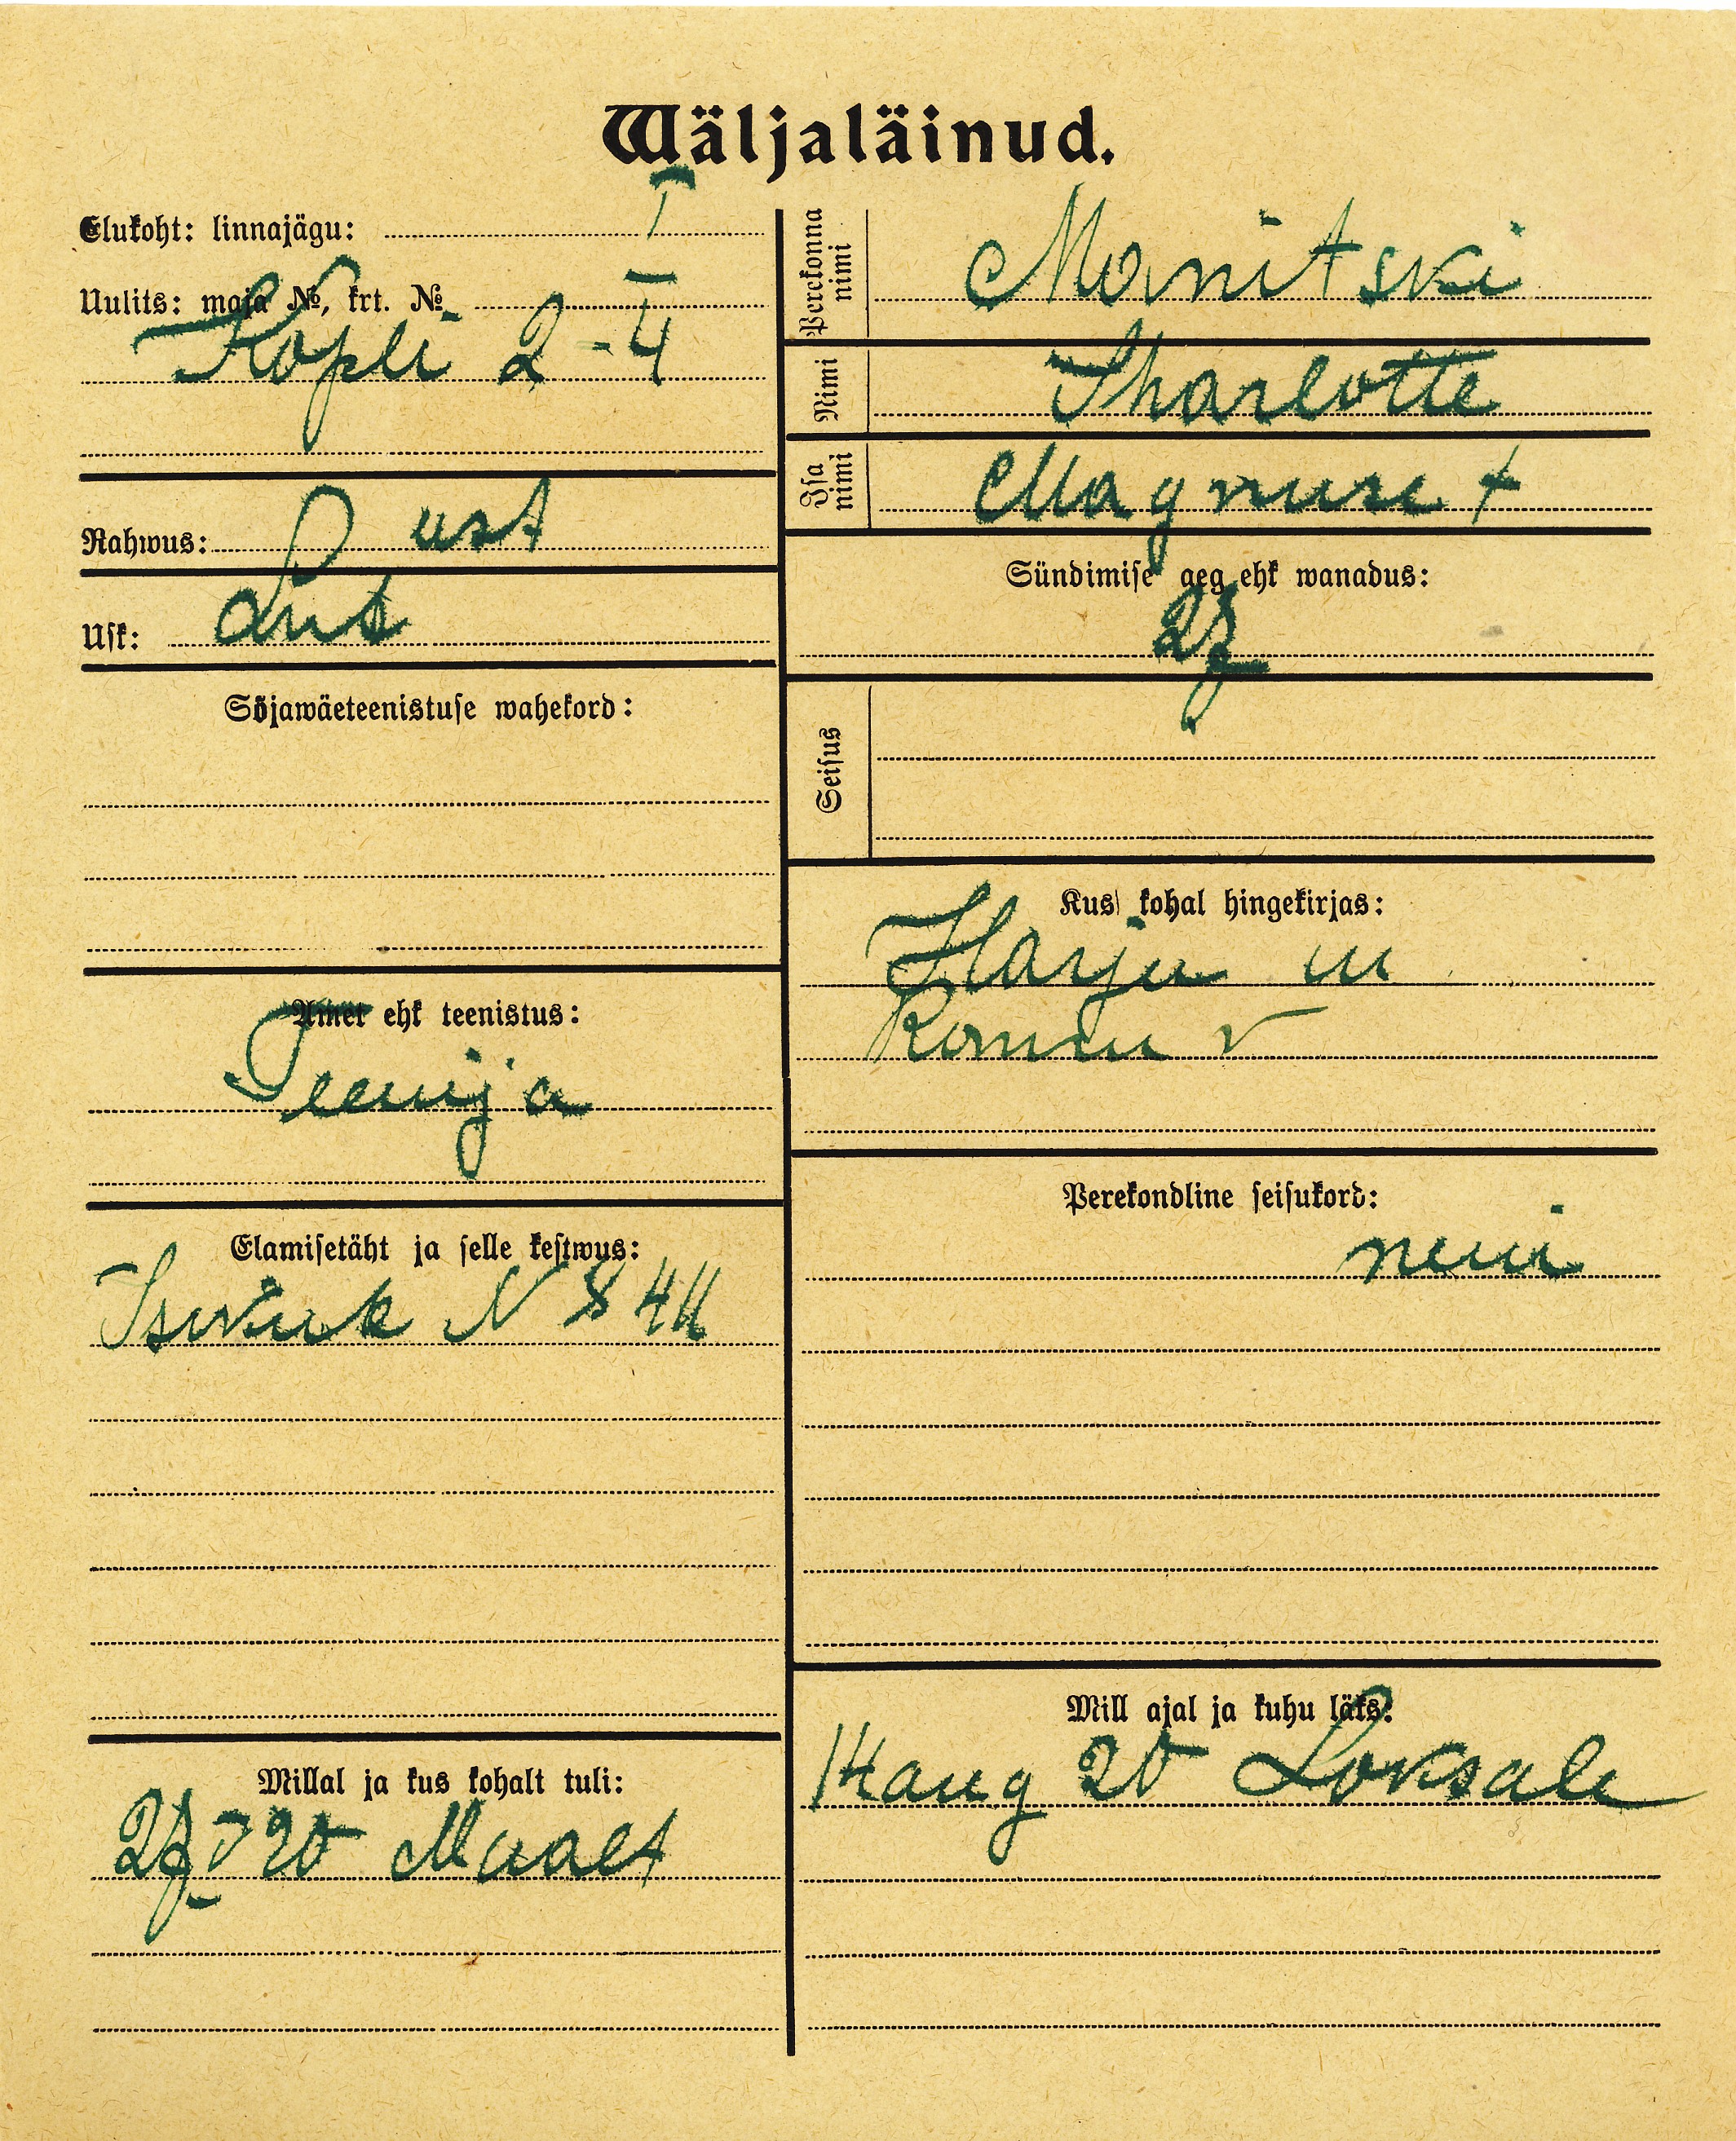 Wäljaläinud.
Elukoht: linnajägu: I
Uulits: maja №, krt. №
Kopli 2-4
Rahwus: Eest
Usk: Lut
Sõjawäeteenistuse wahekord:
Amet ehk teenistus:
Teenija
Elamisetäht ja selle kestwus:
Isikut N 8411
Millal ja kus kohalt tuli:
20 Maalt
Perekonna nimi
Manitski
Nimi
Sharlotte
Isa nimi
Magnuse t
Sündimise aeg ehk wanadus:
Seisus
Kus kohal hingekirjas:
Harju m
Konnu v
Perekondline seisukord:
neiu
Mill ajal ja kuhu läks:
14 aug 20 Loksale